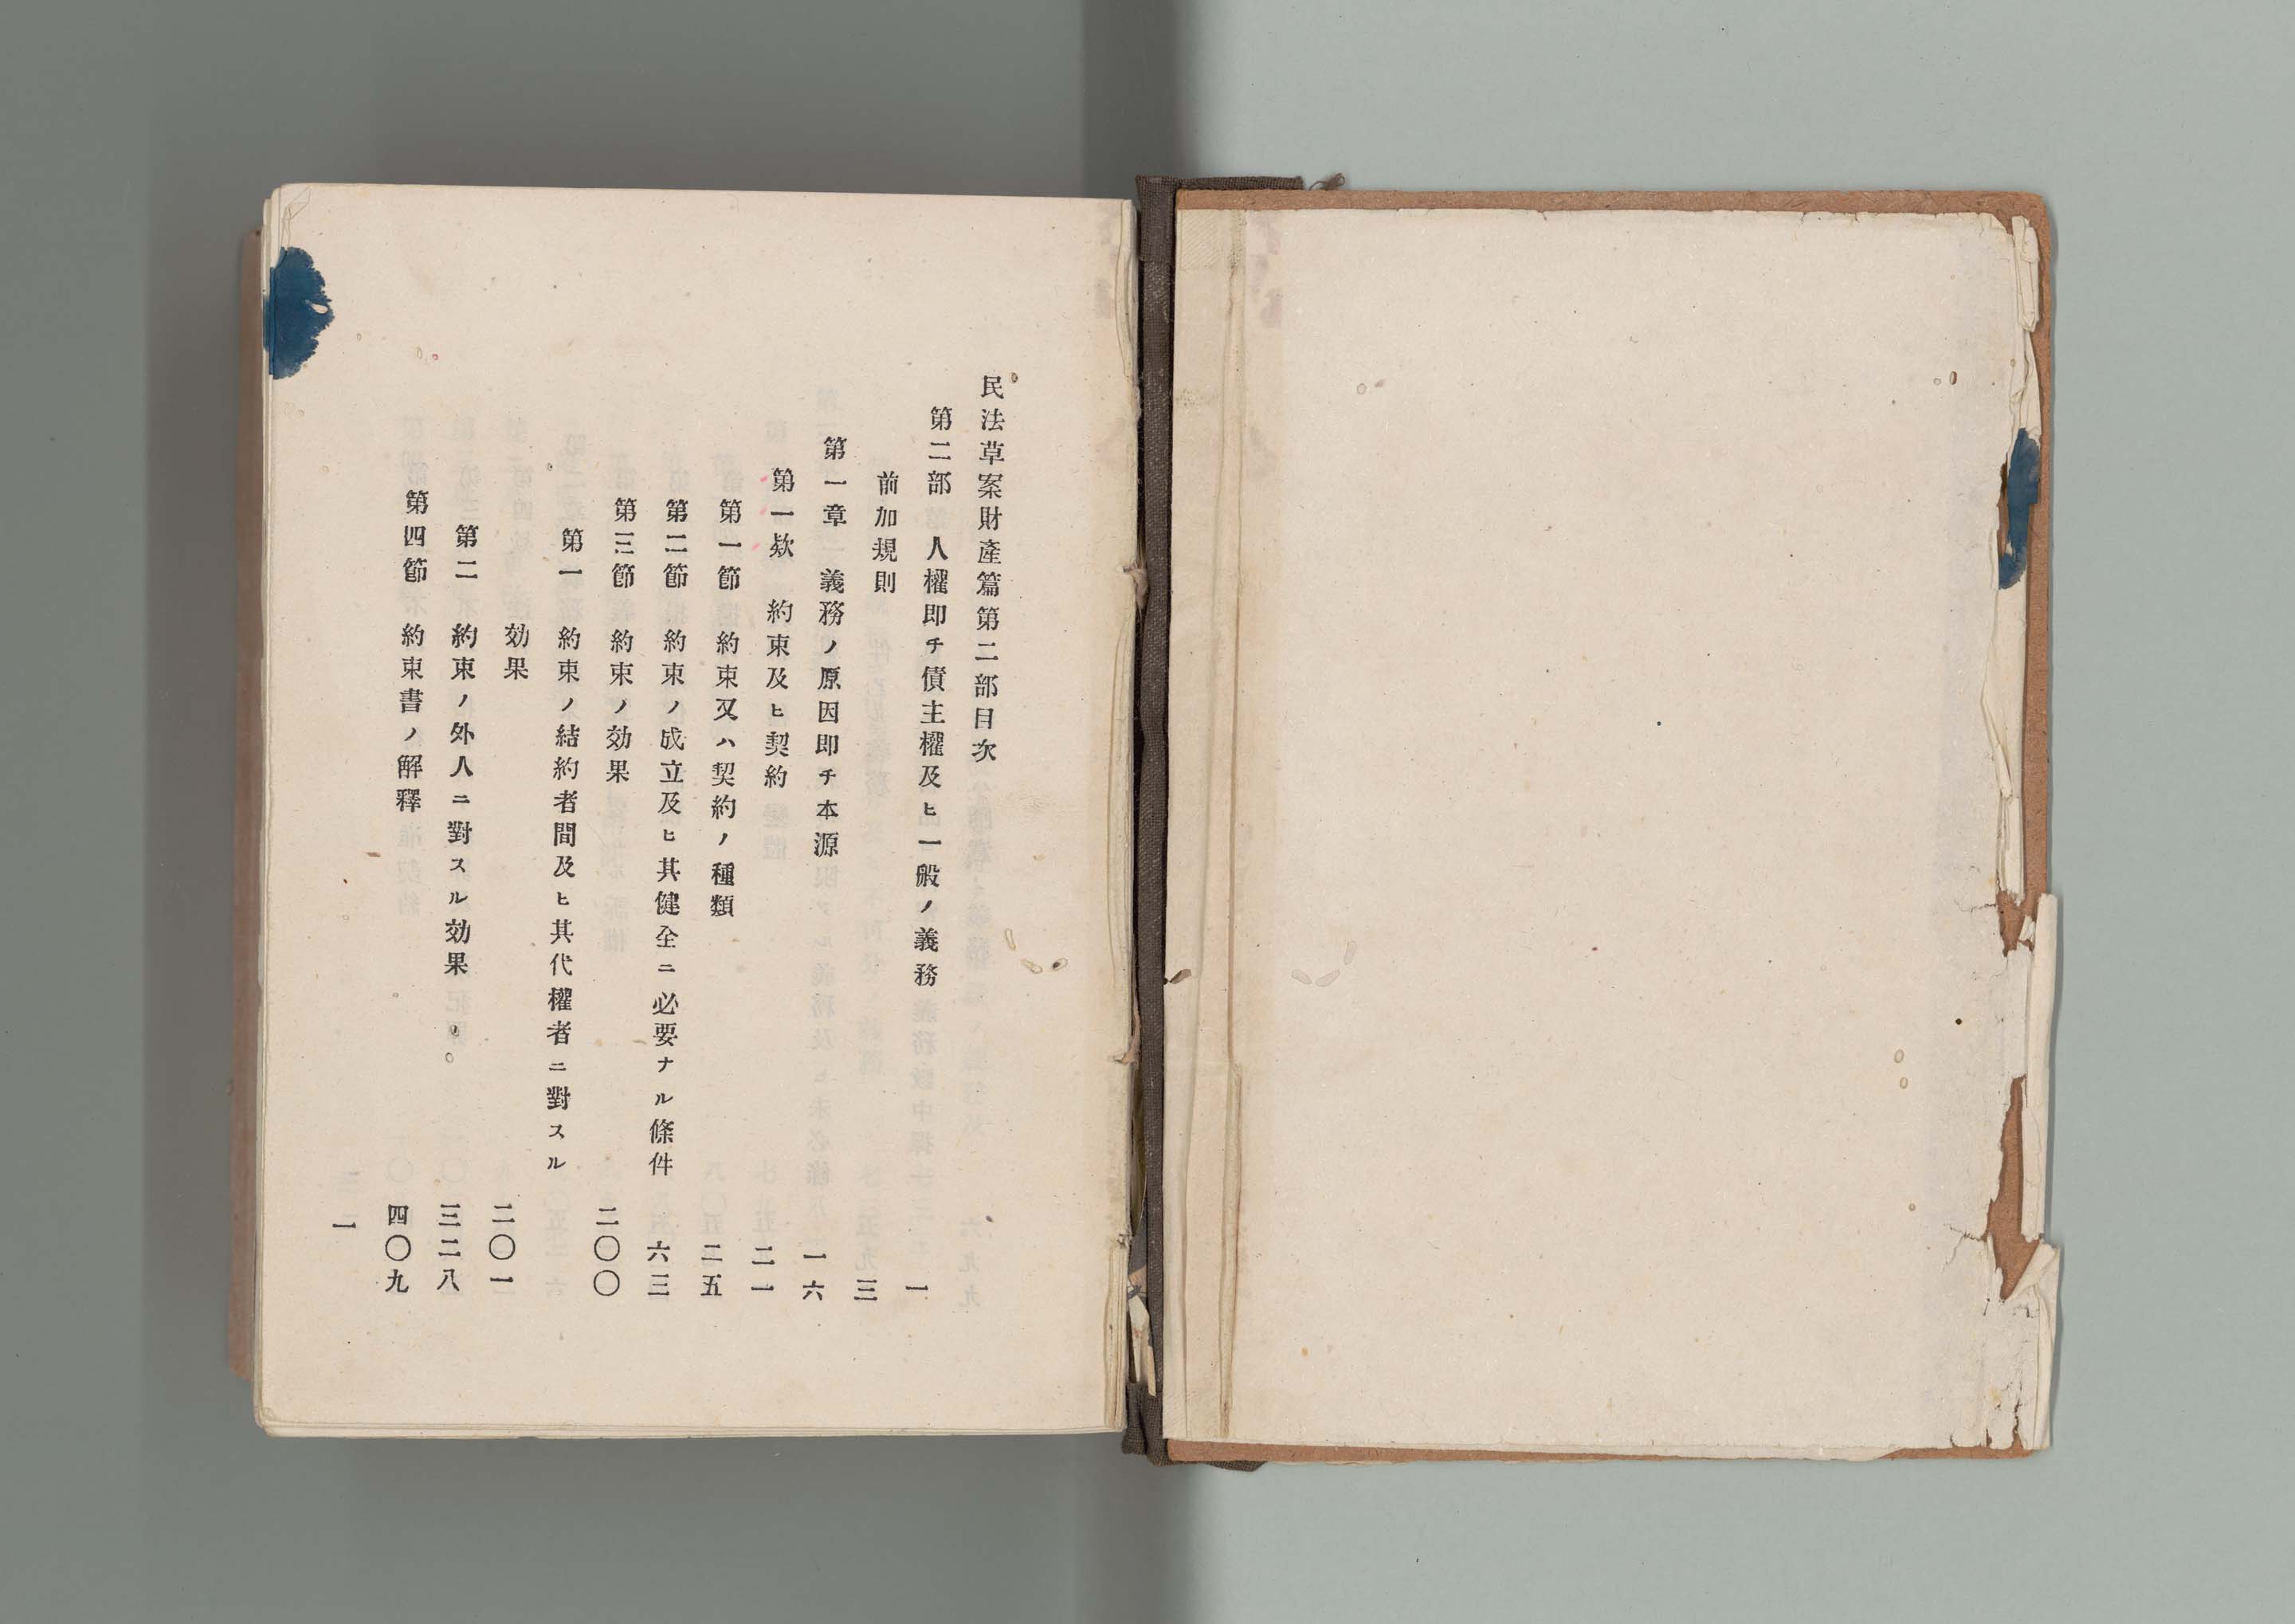 民法草案財產篇第二部目次
第二部人權即チ債主權及ヒ一般ノ義務 一
前加規則 三
第一章 義務ノ原因即チ本源 一六
第一欵 約束及ヒ契約 二一
第一節 約束又ハ契約ノ種類 二五
第二節 約束ノ成立及ヒ其健全ニ必要ナル條件 六三
第三節 約束ノ効果 二〇〇
第一 約束ノ結約者間及ヒ其代權者ニ對スル
効果 二〇一
第二 約束ノ外人ニ對スル効果 三二八
第四節 約束書ノ解釋 四〇九
一